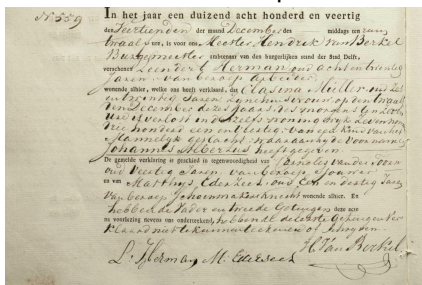 N°. 559
In het jaar een duizend acht honderd en veertig
den Veertienden der maand December des middags ten
twaalf ure, is voor ons, Meester Hendrik van Berkel
Burgemeester ambtenaar van den burgerlijken stand der Stad Delft,
verschenen Leendert Herman oud acht en twintig
Jaren van beroep Arbeider
wonende alhier, welke ons heeft verklaard, dat Clasina Muller oud
en twintig Jaren zijne huisvrouw op den twaalf
den December dezes jaars des morgens ten
ure is verlost in
drie honderd een en veertig van een kind van het
Mannelijk geslacht waaraan hij de voornamen
Johannes Hubertus heeft gegeven
De gemelde verklaring is geschied in tegenwoordigheid van Jacobus van der
oud veertig Jaren van beroep
en van Matthijs Ederzeel oud Een en dertig Jaren
van beroep Schoenmakersknecht wonende alhier. En
hebben de Vader en tweede Getuigen deze acte
na voorlezing nevens ons onderteekend, hebbende de eerste Getuigen ver
klaard niet te kunnen teekenen of schrijven
L. Herman M. Ederzeel H. Van Berkel